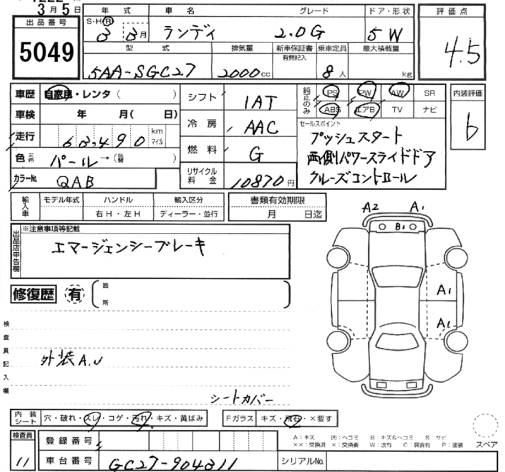 3月5日
出品番号
5049
年式 車名 グレード ドア・形状 評価点
S・H・R 3 3月 ランディ 2.0G 5W 4.5
型式 排気量 新車保証書 有無記入 乗車定員 最大積載量
5AA-SGC27 2000cc 8人 kg
車歴 自家用・レンタ( )
シフト 1AT
純正のみ PS PW AW SR
ABS エアB TV ナビ
内装評価
車検 年 月( 日)
冷房 AAC
セールスポイント
プッシュスタート
b
走行 63,490 km マイル
両側パワースライドドア
燃料 G
クルーズコントロール
色 パール→( )
リサイクル料金 10870円
カラーNo. QAB
輸入車 モデル年式 ハンドル 輸入区分 書類有効期限
右H・左H ディーラー・並行 月 日迄
出品店申告欄 ※注意事項等記載
エマージェンシーブレーキ
A2 A1
B1
修復歴 有 箇所
A1
A1
検査員記入欄
外装A.U
シートカバー
内装シート 穴・破れ・スレ・コゲ・汚れ・キズ・黄ばみ Fガラス キズ・飛石・×要す
スペア
検査員 11
登録番号
車台番号 GC27-904311 シリアルNo.